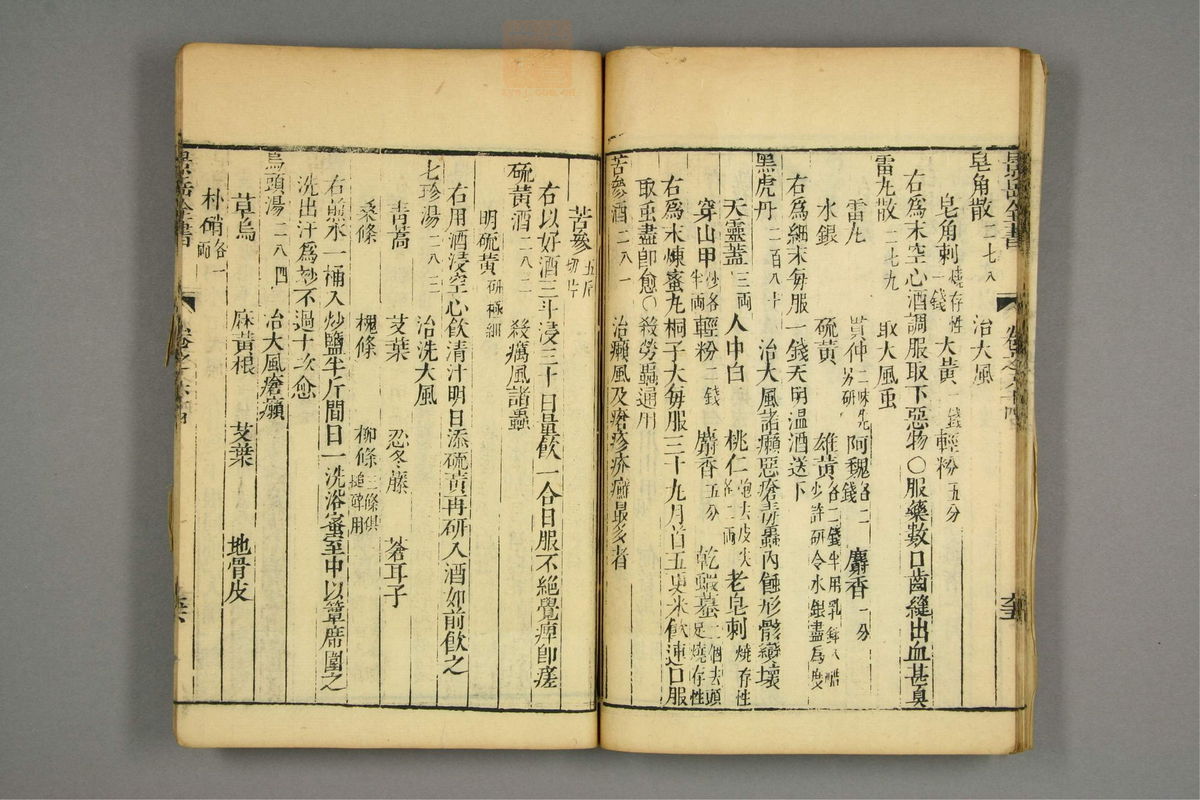 景岳全書
卷之六十四
皂角散二七八　治大風
皂角刺燒存性一錢　大黃一錢　輕粉五分
右為末空心酒調服取下惡物〇服藥數口齒縫出血甚臭
雷丸散二七九　取大風虫
雷丸　貫仲二味先另研　阿魏各二錢　麝香一分
水銀　硫黃　雄黃各二錢半用乳鉢入醋少許研令水銀盡為度
右為細末每服一錢天明温酒送下
黑虎丹二百八十　治大風諸癩惡瘡毒蟲內蝕形骸變壞
天靈蓋三兩　人中白　桃仁炮去皮尖各二兩　老皂刺燒存性
穿山甲炒各半兩　輕粉二錢　麝香五分　乾蝦蟇二個去頭足燒存性
右為末煉蜜丸桐子大每服三十九月首五更米飲連口服
取虫盡即愈〇殺勞蟲通用
苦參酒二八一　治癩風及瘡疹疥癬最多者
苦參五斤切片
右以好酒三斗浸三十日量飲一合日服不絶覺痺即瘥
硫黃酒二八二　殺癘風諸蟲
明硫黃研極細
右用酒浸空心飲清汁明日添硫黃再研入酒如前飲之
七珍湯二八三　治洗大風
青蒿　艾葉　忍冬藤　蒼耳子
桑條　槐條　柳條三條俱搥碎用
右煎水一桶入炒鹽半斤間日一洗浴蜜室中以簟席圍之
洗出汗為妙不過十次愈
烏頭湯二八四　治大風瘡癩
草烏　麻黃根　艾葉　地骨皮
朴硝各一兩
景岳全書